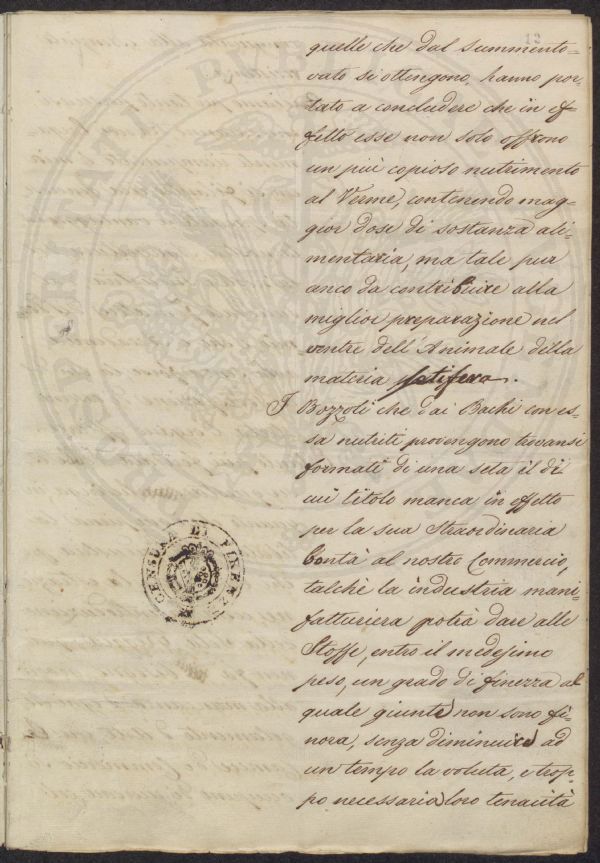 12
quelle che dal summento=
vato si ottengono, hanno por=
tato a concludere che in ef=
fetto esse non solo offrono
un più copioso nutrimento
al Verme, contenendo mag=
gior dose di sostanza ali=
mentaria, ma tale pur
anco da contribuire alla
miglior preparazione nel
ventre dell'Animale della
materia setifera.
I Bozzoli che dai Bachi con es=
sa nutriti provengono trovansi
formati di una seta il di
cui titolo manca in effetto
per la sua Straordinaria
bontà al nostro Commercio,
talchè la industria mani=
fatturiera potrà dare alle
Stoffe, entro il medesimo
peso, un grado di finezza al
quale giunte non sono fi=
nora, senza diminuire ad
un tempo la voluta, e trop=
po necessaria loro tenacità
CENSURA DI FIRENZE